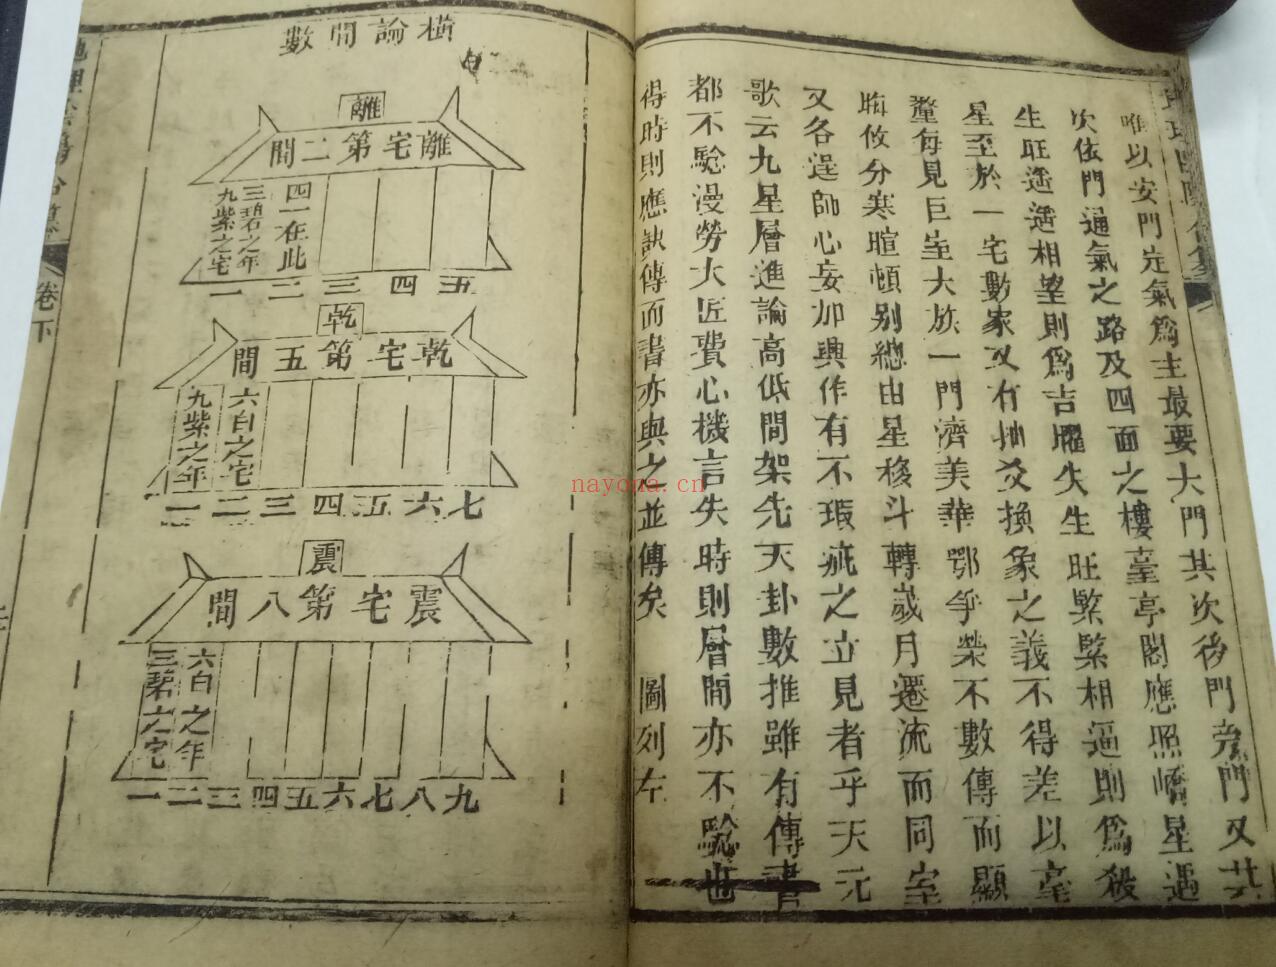 唯以安門定氣爲主最要大門其次後門旁門又其
次依門通氣之路及四面之樓臺亭閣應照嶠星遇
生旺遥遥相望則爲吉曜失生旺緊緊相逼則爲殺
星至於一宅數家又有抽爻換象之義不得差以毫
釐每見巨室大族一門濟美華鄂爭榮不數傳而顯
晦攸分寒暄頓别總由星移斗轉歲月遷流而同室
又各逞師心妄加興作有不瑕疵之立見者乎天元
歌云九星層進論高低間架先天卦數推雖有傳書
都不驗漫勞大匠費心機言失時則層間亦不驗也
得時則應訣傳而書亦與之並傳矣 圖列左
橫論間數
離
離宅第二間
四一在此
三碧之年
九紫之宅
五四三二一
乾
乾宅第五間
六白之宅
九紫之年
七六五四三二一
震
震宅第八間
六白之年
三碧之宅
九八七六五四三二一
卷下
nayona.cn